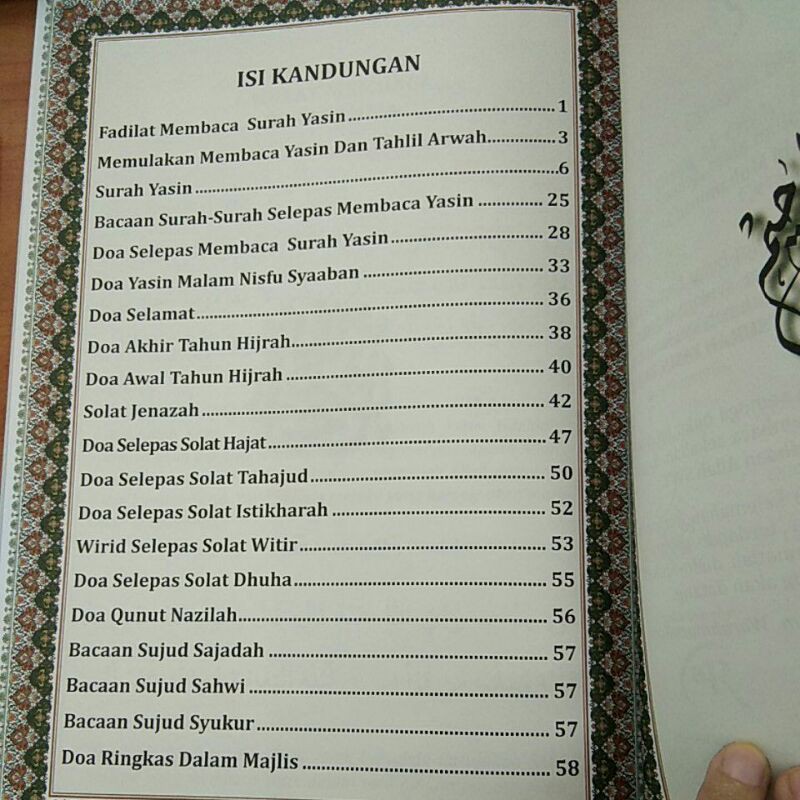 ISI KANDUNGAN
Fadilat Membaca Surah Yasin..................................................1
Memulakan Membaca Yasin Dan Tahlil Arwah.................3
Surah Yasin.....................................................................................6
Bacaan Surah-Surah Selepas Membaca Yasin ............... 25
Doa Selepas Membaca Surah Yasin.................................... 28
Doa Yasin Malam Nisfu Syaaban .......................................... 33
Doa Selamat.................................................................................. 36
Doa Akhir Tahun Hijrah............................................................ 38
Doa Awal Tahun Hijrah ............................................................ 40
Solat Jenazah................................................................................ 42
Doa Selepas Solat Hajat.............................................................. 47
Doa Selepas Solat Tahajud....................................................... 50
Doa Selepas Solat Istikharah .................................................. 52
Wirid Selepas Solat Witir......................................................... 53
Doa Selepas Solat Dhuha.......................................................... 55
Doa Qunut Nazilah..................................................................... 56
Bacaan Sujud Sajadah ............................................................... 57
Bacaan Sujud Sahwi................................................................... 57
Bacaan Sujud Syukur................................................................. 57
Doa Ringkas Dalam Majlis....................................................... 58